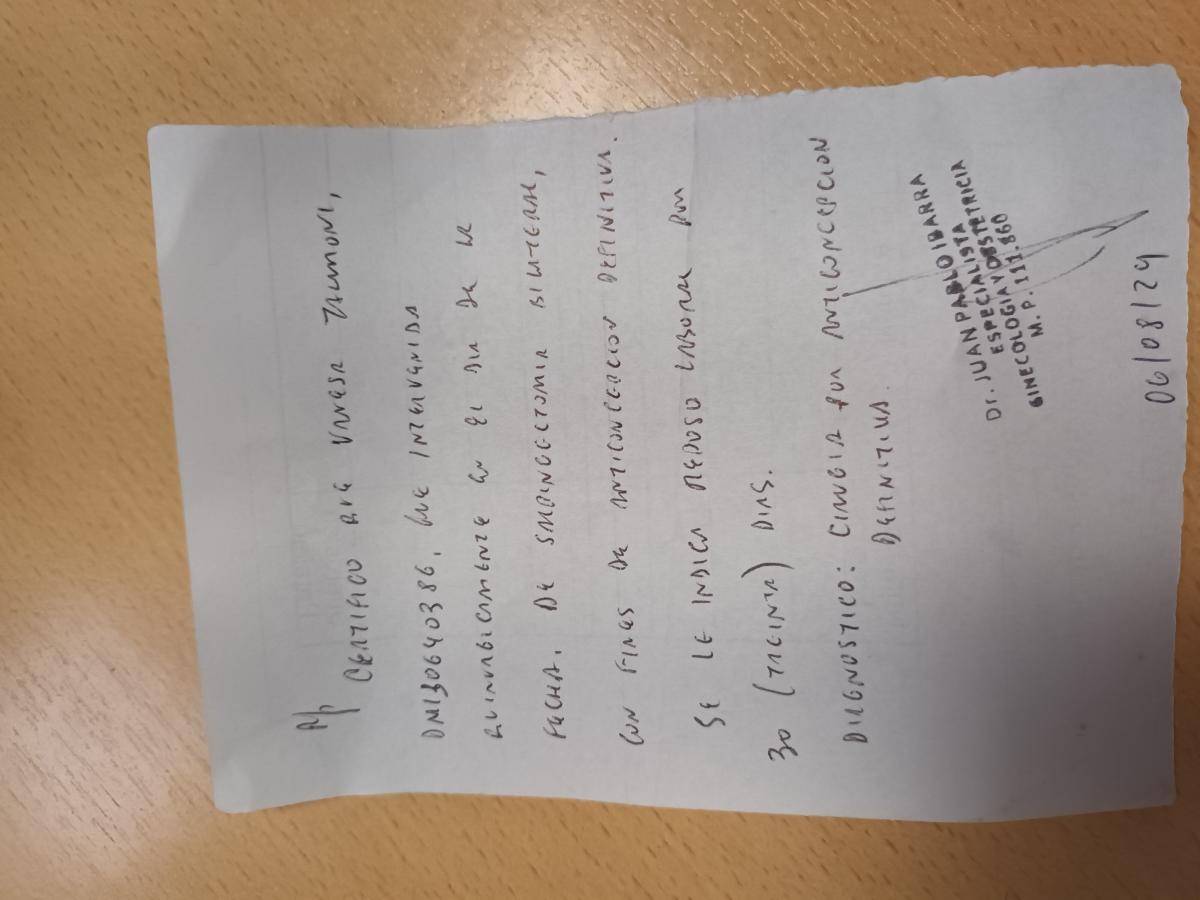 R/p
CERTIFICO QUE VANESA
DNI 30640386, FUE INTERVENIDA
QUIRURGICAMENTE EN EL DIA DE LA
FECHA. DE SALPINGECTOMIA BILATERAL,
CON FINES DE ANTICONCEPCION DEFINITIVA.
SE LE INDICA REPOSO LABORAL POR
30 (TREINTA) DIAS.
DIAGNOSTICO: CIRUGIA POR ANTICONCEPCION
DEFINITIVA.
Dr. JUAN PABLO IBARRA
ESPECIALISTA
GINECOLOGIA Y OBSTETRICIA
M. P. 111.860
06/08/24